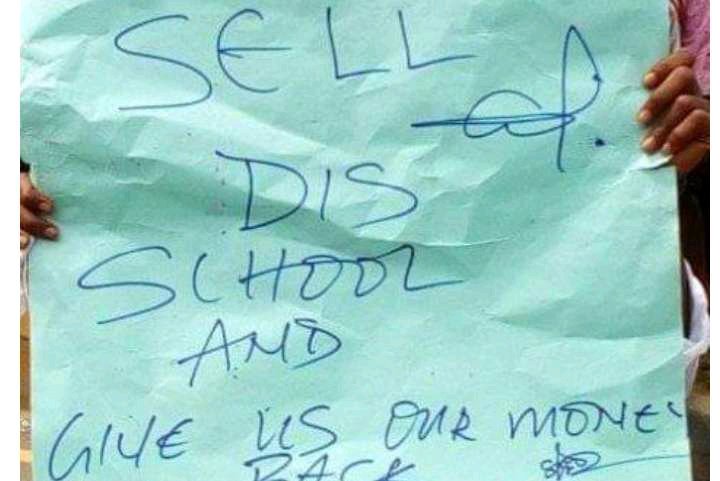 SELL
DIS
SCHOOL
AND
GIVE US OUR MONEY
BACK